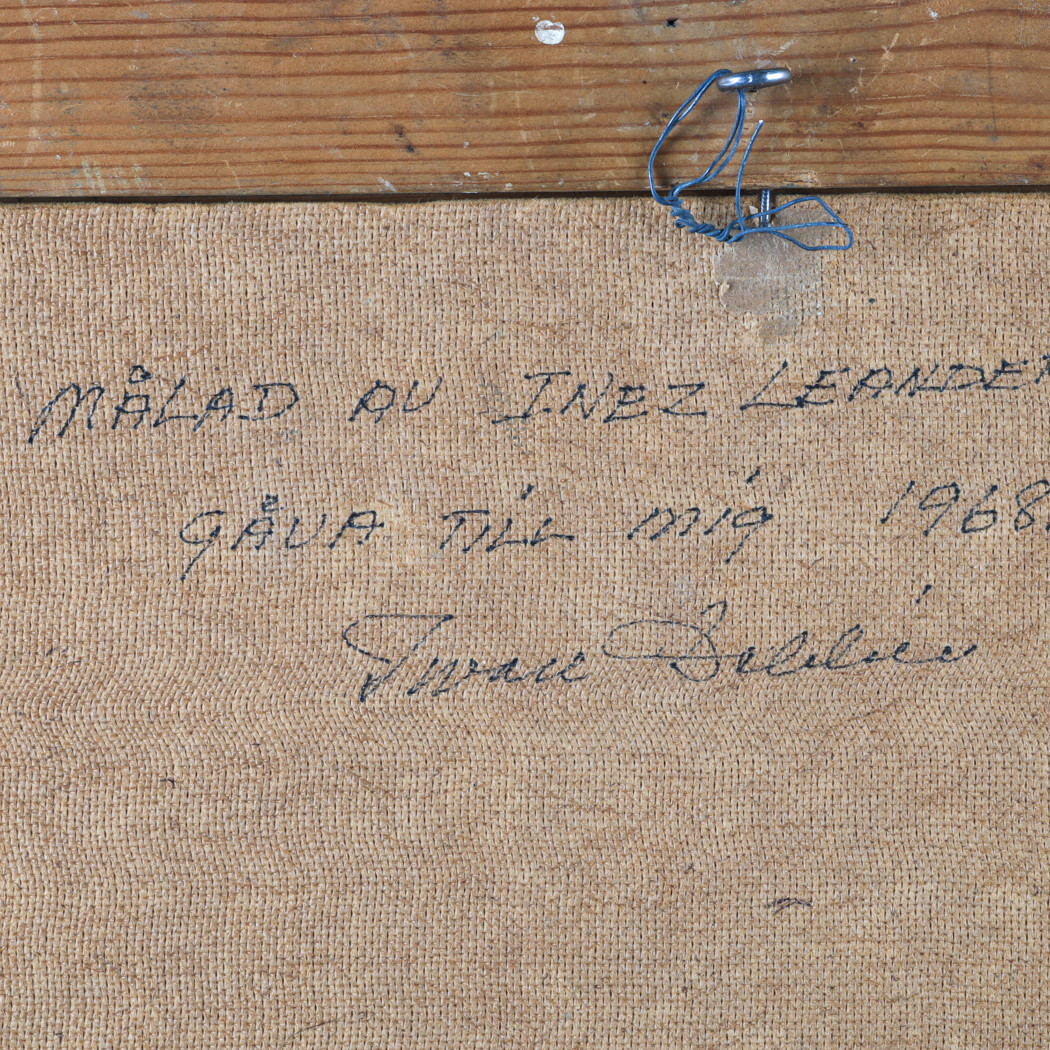 MÅLAD AV INEZ LEANDER
GÅVA TILL MIG 1968
Ivan